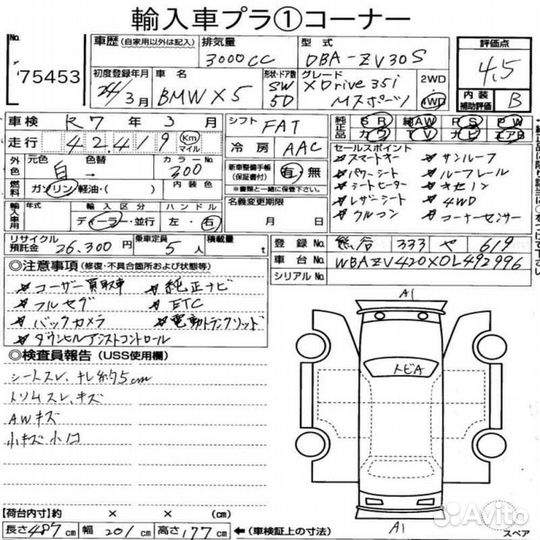 輸入車プラ①コーナー
No. 75453
車歴 (自家用以外は記入) 排気量 3000CC 型式 DBA-ZV30S
初度登録年月 24/3月 車名 BMW X5 形状・ドア数 SW 5D グレード XDrive35i Mスポーツ 2WD 4WD
評価点 4.5
内装補助評価 B
車検 R7年3月 シフト FAT
走行 42,419 Km マイル 冷房 AAC
純正品 SR 純AW PS PW カワ TV ナビ エアB
外色 元色 白 色替 → カラーNo. 300
燃料 ガソリン・軽油・( ) 内装色
新車整備手帳(保証書付) 有・無
輸入車用 年式 輸入区分 ディーラー・並行 ハンドル 左・右
名義変更期限 月 日
セールスポイント
スマートキー サンルーフ
パワーシート ルーフレール
シートヒーター キセノン
レザーシート 4WD
クルコン コーナーセンサー
リサイクル預託金 26,300円 乗車定員 5人 積載量 t
登録No. 熊谷 333 や 619
車台No. WBAZV420X0L492996
シリアルNo.
◎注意事項 (修復・不具合箇所および状態等)
ユーザー買取車 純正ナビ
フルセグ ETC
バックカメラ 電動トランクリッド
ダウンヒルアシストコントロール
◎検査員報告 (USS使用欄)
シートスレ、ナレ 約5cm
トリムスレ、キズ
AWキズ
小キズ 小凹
A1
トビA
A1
スペア
【荷台内寸】約 × × (cm)
長さ 487 cm 幅 201 cm 高さ 177 cm ←(車検証上の寸法)
Avito